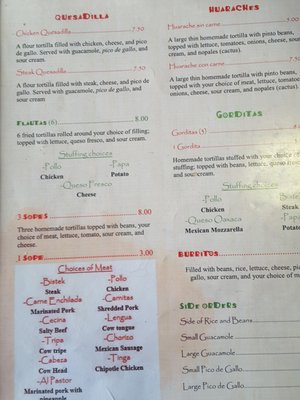 QUESADILLA
Chicken Quesadilla 7.50
A flour tortilla filled with chicken, cheese, and pico
de gallo. Served with guacamole, pico de gallo, and
sour cream.
Steak Quesadilla 7.50
A flour tortilla filled with steak, cheese, and pico de
gallo. Served with guacamole, pico de gallo, and
sour cream
FLAUTAS (6) 8.00
6 fried tortillas rolled around your choice of filling;
topped with lettuce, queso fresco, and sour cream.
Stuffing choices
-Pollo
Chicken
-Papa
Potato
-Queso Fresco
Cheese
3 SOPES 8.00
Three homemade tortillas topped with beans, your
choice of meat, lettuce, tomato, sour cream, and
cheese.
1 SOPE 3.00
Choices of Meat
-Bistek
Steak
-Pollo
Chicken
-Carne Enchilada
Marinated Pork
-Carnitas
Shredded Pork
-Cecina
Salty Beef
-Lengua
Cow tongue
-Tripa
Cow tripe
-Chorizo
Mexican Sausage
-Cabeza
Cow Head
-Tinga
Chipotle Chicken
-Al Pastor
Marinated pork with
pineapple
HUARACHES
Huarache sin carne 5.00
A large thin homemade tortilla with pinto beans,
topped with lettuce, tomatoes, onions, cheese, sour
cream, and nopales (cactus).
Huarache con carne 7.50
A large thin homemade tortilla with pinto beans,
topped with your choice of meat, lettuce, tomatoes,
onions, cheese, sour cream, and nopales (cactus).
GORDITAS
Gorditas (3) 8
1 Gordita
Homemade tortillas stuffed with your choice of
stuffing, topped with beans, lettuce,
cream, and cheese.
Stuffing choices
-Pollo
Chicken
-Bistek
Steak
-Queso Oaxaca
Mexican Mozzarella
-Papa
Potato
BURRITOS
Filled with beans, rice, lettuce, cheese,
sour cream, and your choice of
SIDE ORDERS
Side of Rice and Beans
Small Guacamole
Large Guacamole
Small Pico de Gallo
Large Pico de Gallo